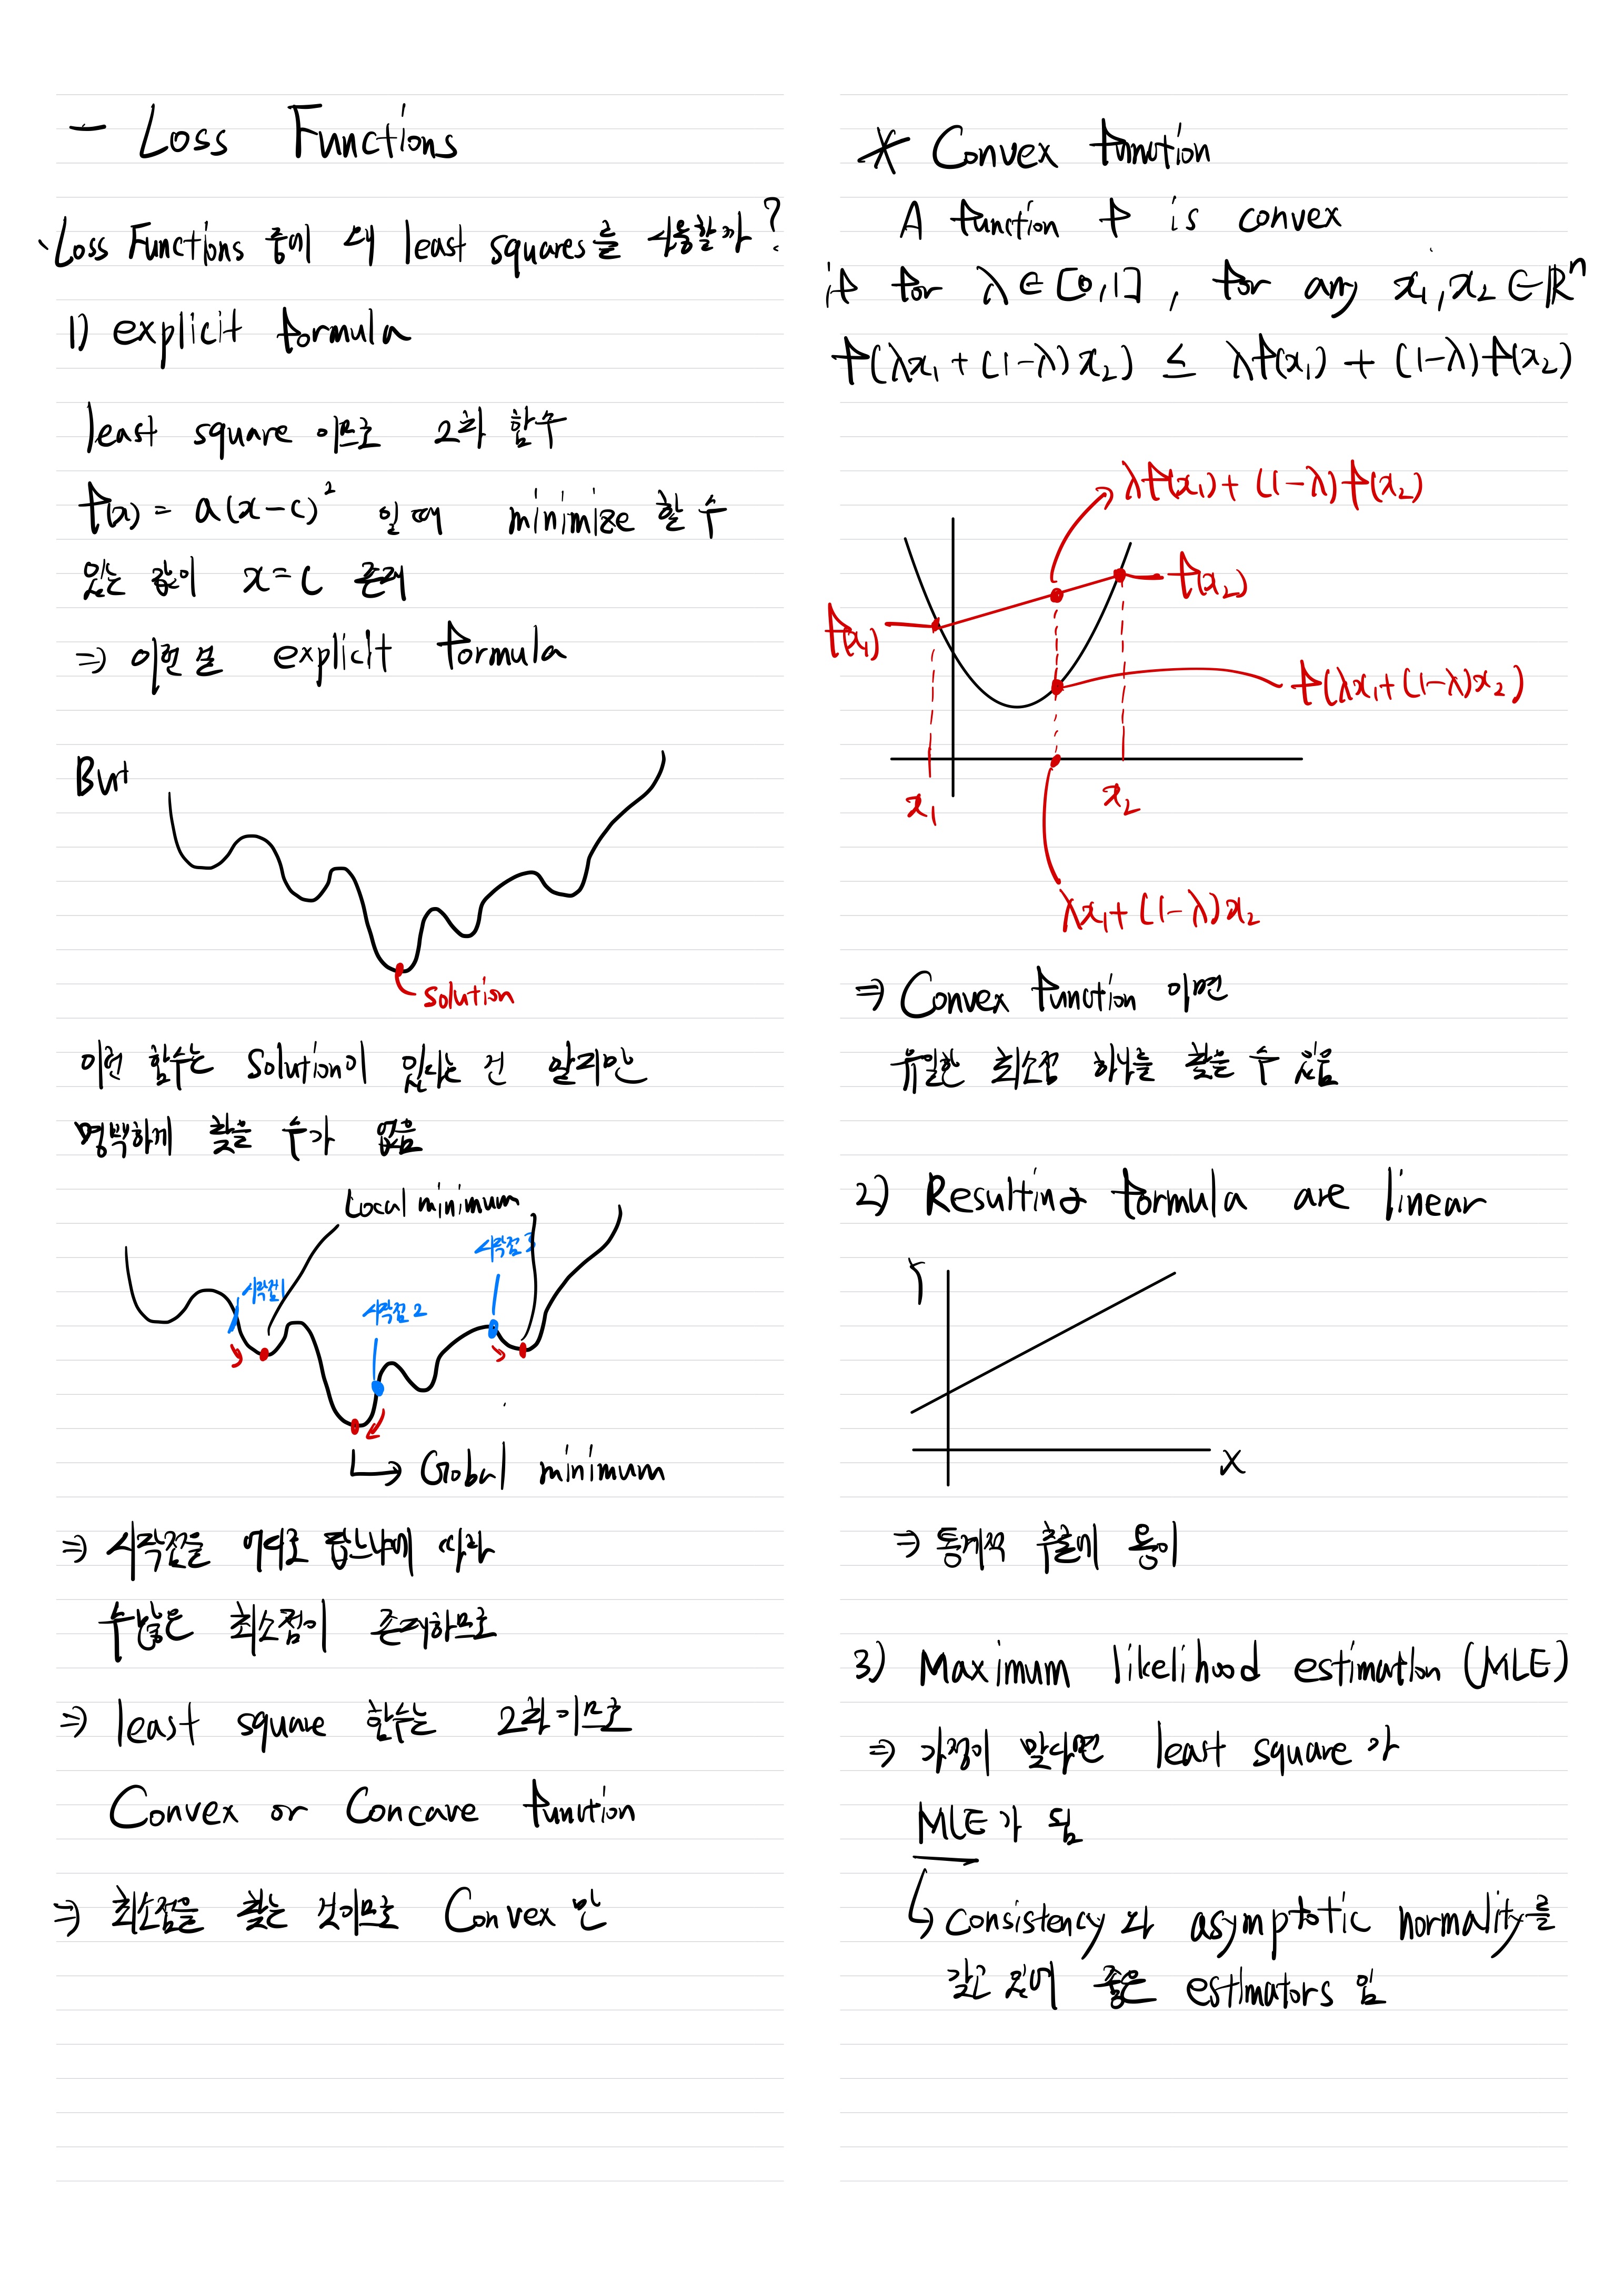 - Loss Functions
· Loss Functions 중에 왜 least squares를 사용할까?
1) explicit formula
least square 이므로 2차 함수
f(x) = a(x-c)² 일 때 minimize 할 수
있는 값이 x=c 존재
⇒ 이런 걸 explicit formula
But
solution
이런 함수는 Solution이 있다는 건 알지만
명백하게 찾을 수가 없음
Local minimum
시작점1
시작점2
시작점3
↳ Global minimum
⇒ 시작점을 어디로 잡느냐에 따라
수많은 최소점이 존재하므로
⇒ least square 함수는 2차이므로
Convex or Concave function
⇒ 최소점을 찾는 것이므로 Convex 만
* Convex function
A function f is convex
if for λ ∈ [0,1] , for any x₁, x₂ ∈ ℝⁿ
f(λx₁ + (1-λ)x₂) ≤ λf(x₁) + (1-λ)f(x₂)
λf(x₁) + (1-λ)f(x₂)
f(x₂)
f(x₁)
f(λx₁+(1-λ)x₂)
x₁
x₂
λx₁+(1-λ)x₂
⇒ Convex function 이면
유일한 최소점 하나를 찾을 수 있음
2) Resulting formula are linear
Y
X
⇒ 통계적 추론에 용이
3) Maximum likelihood estimation (MLE)
⇒ 가정이 맞다면 least square 가
MLE가 됨
↳ Consistency 와 asymptotic normality를
갖고 있어 좋은 estimators 임